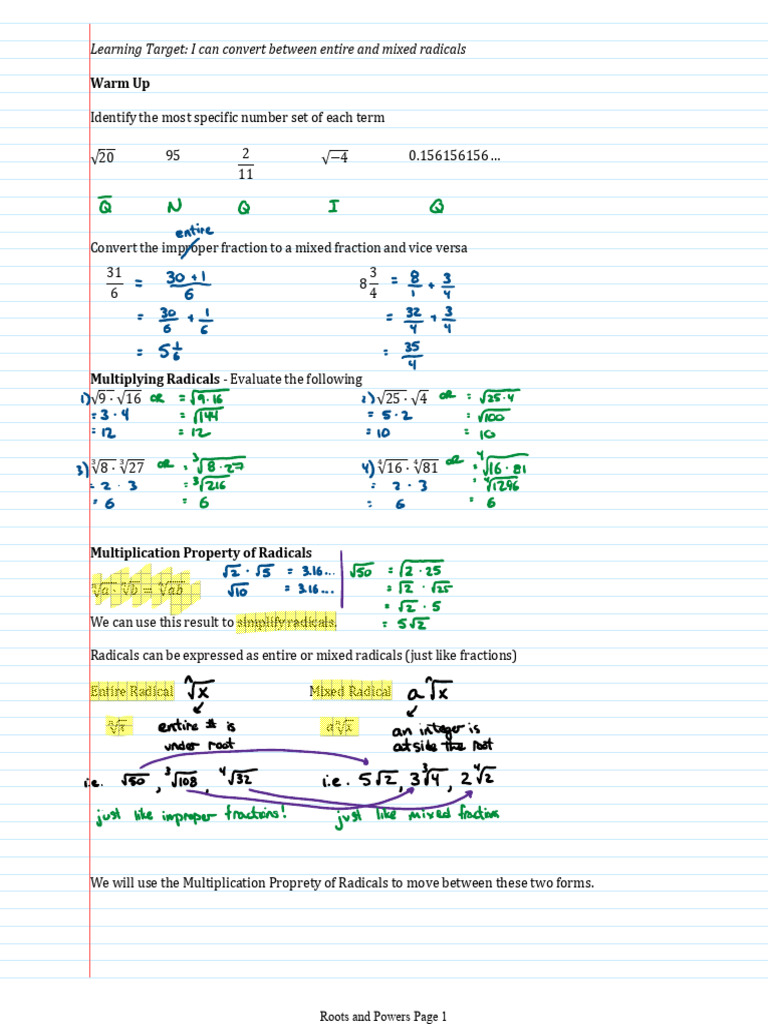 Learning Target: I can convert between entire and mixed radicals
Warm Up
Identify the most specific number set of each term
√20 95 2/11 √−4 0.156156156…
Q̅ N Q I Q
entire
Convert the improper fraction to a mixed fraction and vice versa
31/6 = (30+1)/6 8 3/4 = 8/1 + 3/4
= 30/6 + 1/6 = 32/4 + 3/4
= 5 1/6 = 35/4
Multiplying Radicals - Evaluate the following
1) √9 · √16 OR = √9·16 2) √25 · √4 OR = √25·4
= 3 · 4 = √144 = 5 · 2 = √100
= 12 = 12 = 10 = 10
3) ∛8 · ∛27 OR = ∛8·27 4) ∜16 · ∜81 OR = ∜16·81
= 2 · 3 = ∛216 = 2 · 3 = ∜1296
= 6 = 6 = 6 = 6
Multiplication Property of Radicals
√2 · √5 = 3.16... √50 = √2·25
ⁿ√a · ⁿ√b = ⁿ√ab √10 = 3.16... = √2 · √25
= √2 · 5
We can use this result to simplify radicals. = 5√2
Radicals can be expressed as entire or mixed radicals (just like fractions)
Entire Radical ⁿ√x Mixed Radical a ⁿ√x
ⁿ√x entire # is a ⁿ√x an integer is
under root outside the root
i.e. √50, ∛108, ∜32 i.e. 5√2, 3∛4, 2∜2
just like improper fractions! just like mixed fractions
We will use the Multiplication Proprety of Radicals to move between these two forms.
Roots and Powers Page 1